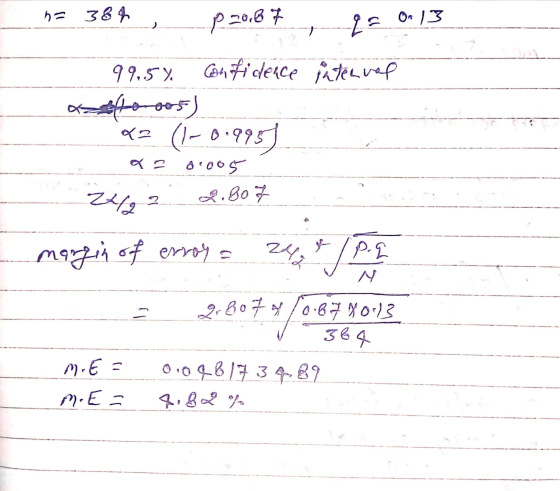 n = 384, p = 0.87, q = 0.13
99.5% Confidence interval
α = (1 - 0.995)
α = 0.005
Zα/2 = 2.807
margin of error = Zα/2 * √(p.q/N)
= 2.807 * √(0.87 * 0.13/384)
M.E = 0.048173489
M.E = 4.82 %